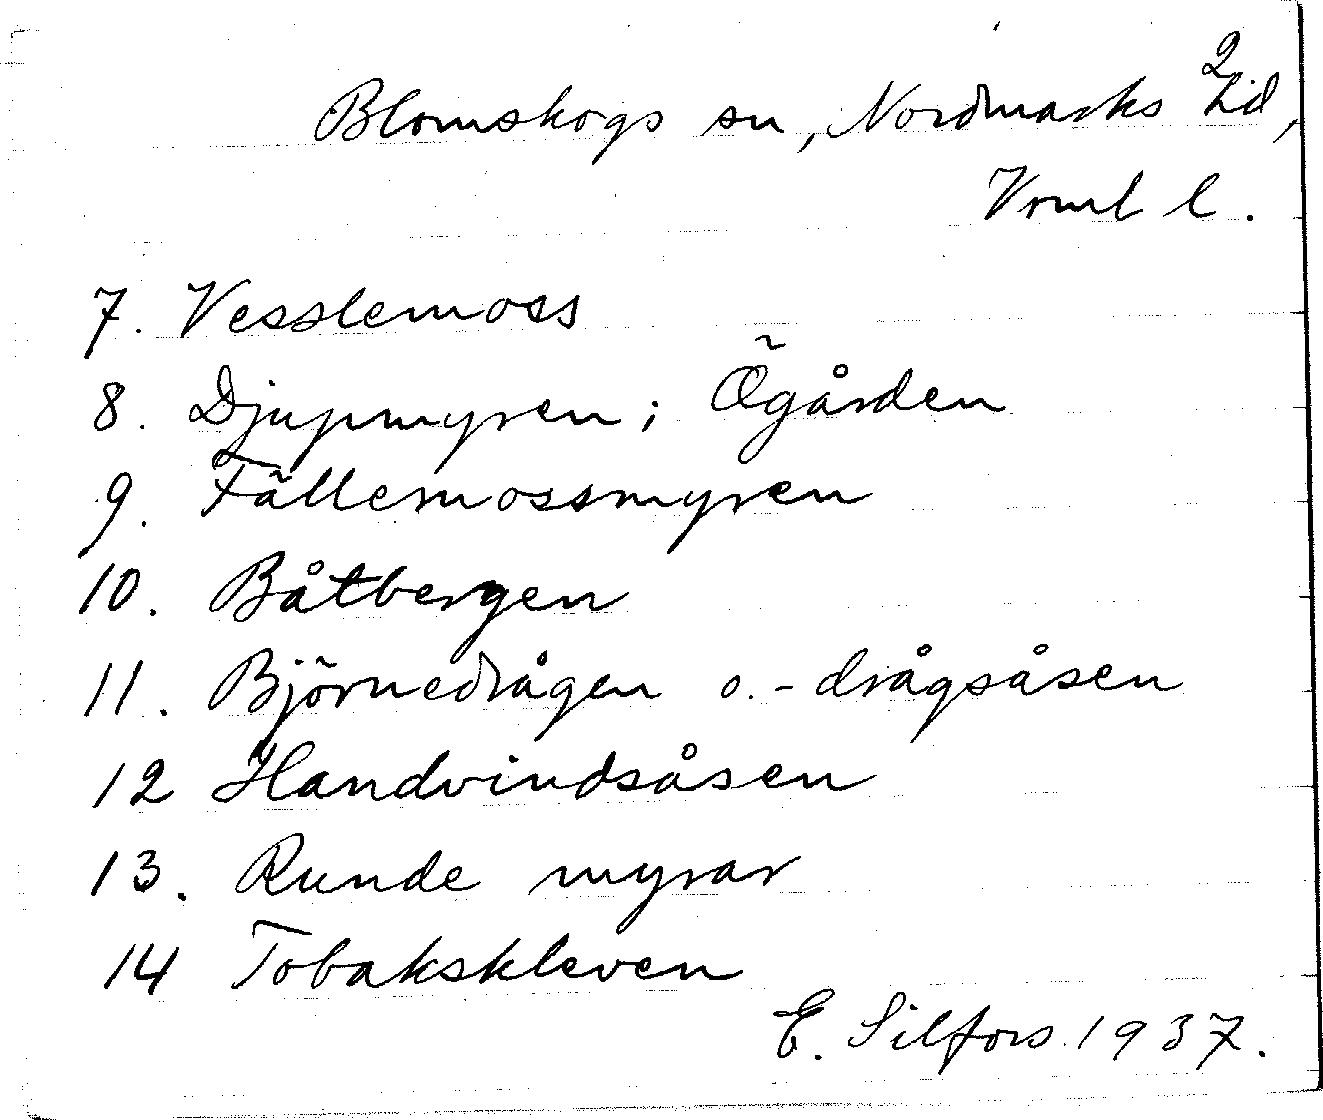 2
Blomskogs sn, Nordmarks hd,
Vrml l.
7. Vesslemoss
8. Djupmyren; Ögården
9. Fällemossmyren
10. Båtbergen
11. Björnedrågen o. - drågsåsen
12 Handvindsåsen
13. Runde myrar
14 Tobakskleven
E. Silfors 1937.